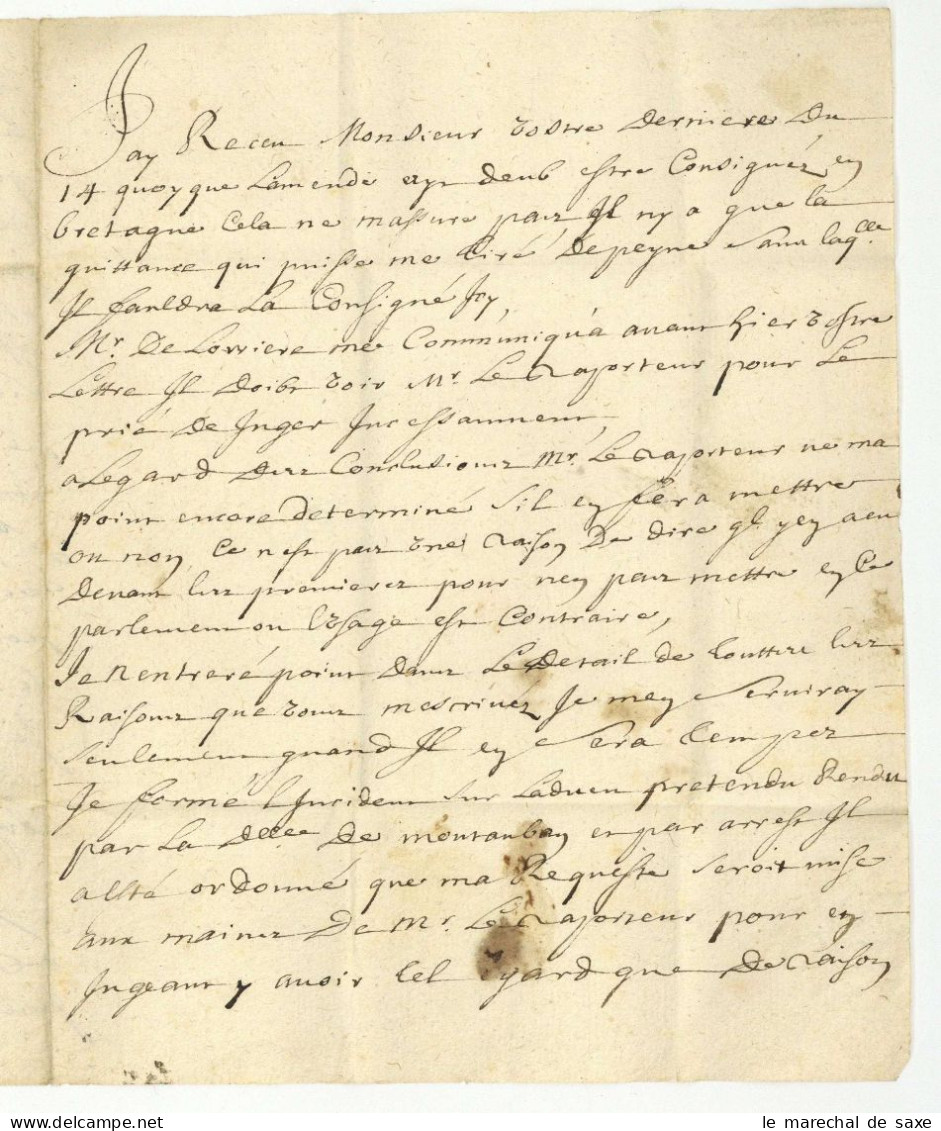 Jay Receu Monsieur vostre derniere du
14 quoyque lamende ayt deub estre Consignéz en
bretagne Cela ne massure pas Jl ny a que la
quittance qui puisse me tiré depeyne sans laqlle
Jl fauldra la Consigné Jcy,
Mr. De Lorriere me Communiqua auant hier vostre
lettre Jl doibt voir Mr. Le raporteur pour Le
prié de Juger Jncessamment,
a Legard des Conclusions Mr. Le raporteur ne ma
point encore determiné sil en fera mettre
ou non, Ce nest pas vne raison De dire ql. yen a eu
deuant les premieres pour nen pas mettre en Ce
parlement ou lvsage est Contraire,
Je nentreré point dans Le detail de touttes les
Raisons que vous mescriuéz Je men seruiray
seulement quand Jl en sera temps
Je formé lJncident sur ladueu pretendu Rendu
par La delle. De montauban et par arrest Jl
a esté ordonné que ma Requeste seroit mise
aux mains De Mr. Le raporteur pour en
Jugeant y auoir tel egard que De raison
le marechal de saxe